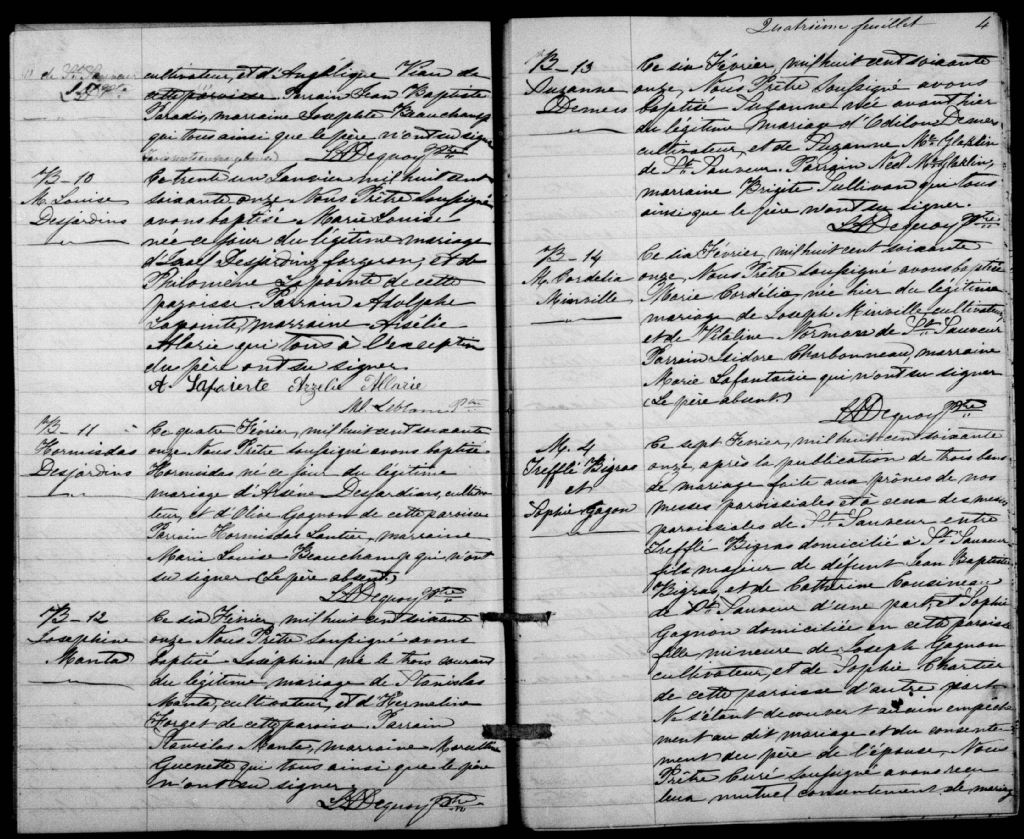 de St. Sauveur
cultivateur, et d'Angélique Viau de
cette paroisse. Parrain Jean Baptiste
Paradis, marraine Josephte Beauchamp
qui tous ainsi que le père n'ont su signer
Dequoy Ptre
B-10
M. Louise
Desjardins
Ce trente un Janvier mil huit cent
soixante onze Nous Prêtre soussigné
avons baptisé Marie Louise
née ce jour du légitime mariage
d'Israel Desjardins forgeron, et de
Philomène Lapointe de cette
paroisse. Parrain Adolphe
Lapointe, marraine Arsélie
Alarie qui tous à l'exception
du père ont su signer.
A. Lapointe Arzélie Allarie
Ptre
B-11
Hormisdas
Desjardins
Ce quatre Février, mil huit cent soixante
onze Nous Prêtre soussigné avons baptisé
Hormisdas né ce jour du légitime
mariage d'Arsène Desjardins, cultiva-
teur, et d'Olive Gagnon de cette paroisse
Parrain Hormisdas Lautier, marraine
Marie Louise Beauchamp qui n'ont
su signer (Le père absent)
Dequoy Ptre
B-12
Joséphine
Manta
Ce six Février, mil huit cent soixante
onze Nous Prêtre soussigné avons
baptisé Joséphine née le trois courant
du légitime mariage de Stanislas
Manta, cultivateur, et d'Hermeline
Forget de cette paroisse Parrain
Stanislas Manta, marraine
Guenette qui tous ainsi que le père
n'ont su signer
Dequoy Ptre
Quatrième feuillet 4
B-13
Suzanne
Demers
Ce six Février, mil huit cent soixante
onze, Nous Prêtre soussigné avons
baptisée Suzanne née avant hier
du légitime mariage d'Odilon Demers
cultivateur, et de Suzanne
de St. Sauveur. Parrain
marraine Brigite Sullivan qui tous
ainsi que le père n'ont su signer.
Dequoy Ptre
B-14
M. Cordelia
Minville
Ce six Février, mil huit cent soixante
onze, Nous Prêtre soussigné avons baptisé
Marie Cordélia, née hier du légitime
mariage de Joseph Minville cultivateur,
et de Vitaline Normand de St. Sauveur
Parrain Isidore Charbonneau, marraine
Marie Lafantaisie qui n'ont su signer
(Le père absent.)
Dequoy Ptre
M. 4
Trefflé Bigras
et
Sophie Gagon
Ce sept Février, mil huit cent soixante
onze, après la publication de trois bans
de mariage faite aux prônes de nos
messes paroissiales et à ceux des messes
paroissiales de St. Sauveur entre
Trefflé Bigras domicilié à St. Sauveur
fils majeur de défunt Jean Baptiste
Bigras, et de Catherine Cousineau
de St. Sauveur d'une part, et Sophie
Gagnon domiciliée en cette paroisse
fille mineure de Joseph Gagnon
cultivateur, et de Sophie Chartier
de cette paroisse d'autre part
Ne s'étant découvert aucun empêche-
ment au dit mariage et du consente-
ment du père de l'épouse, Nous
Prêtre Curé soussigné avons reçu
leur mutuel consentement de mariage